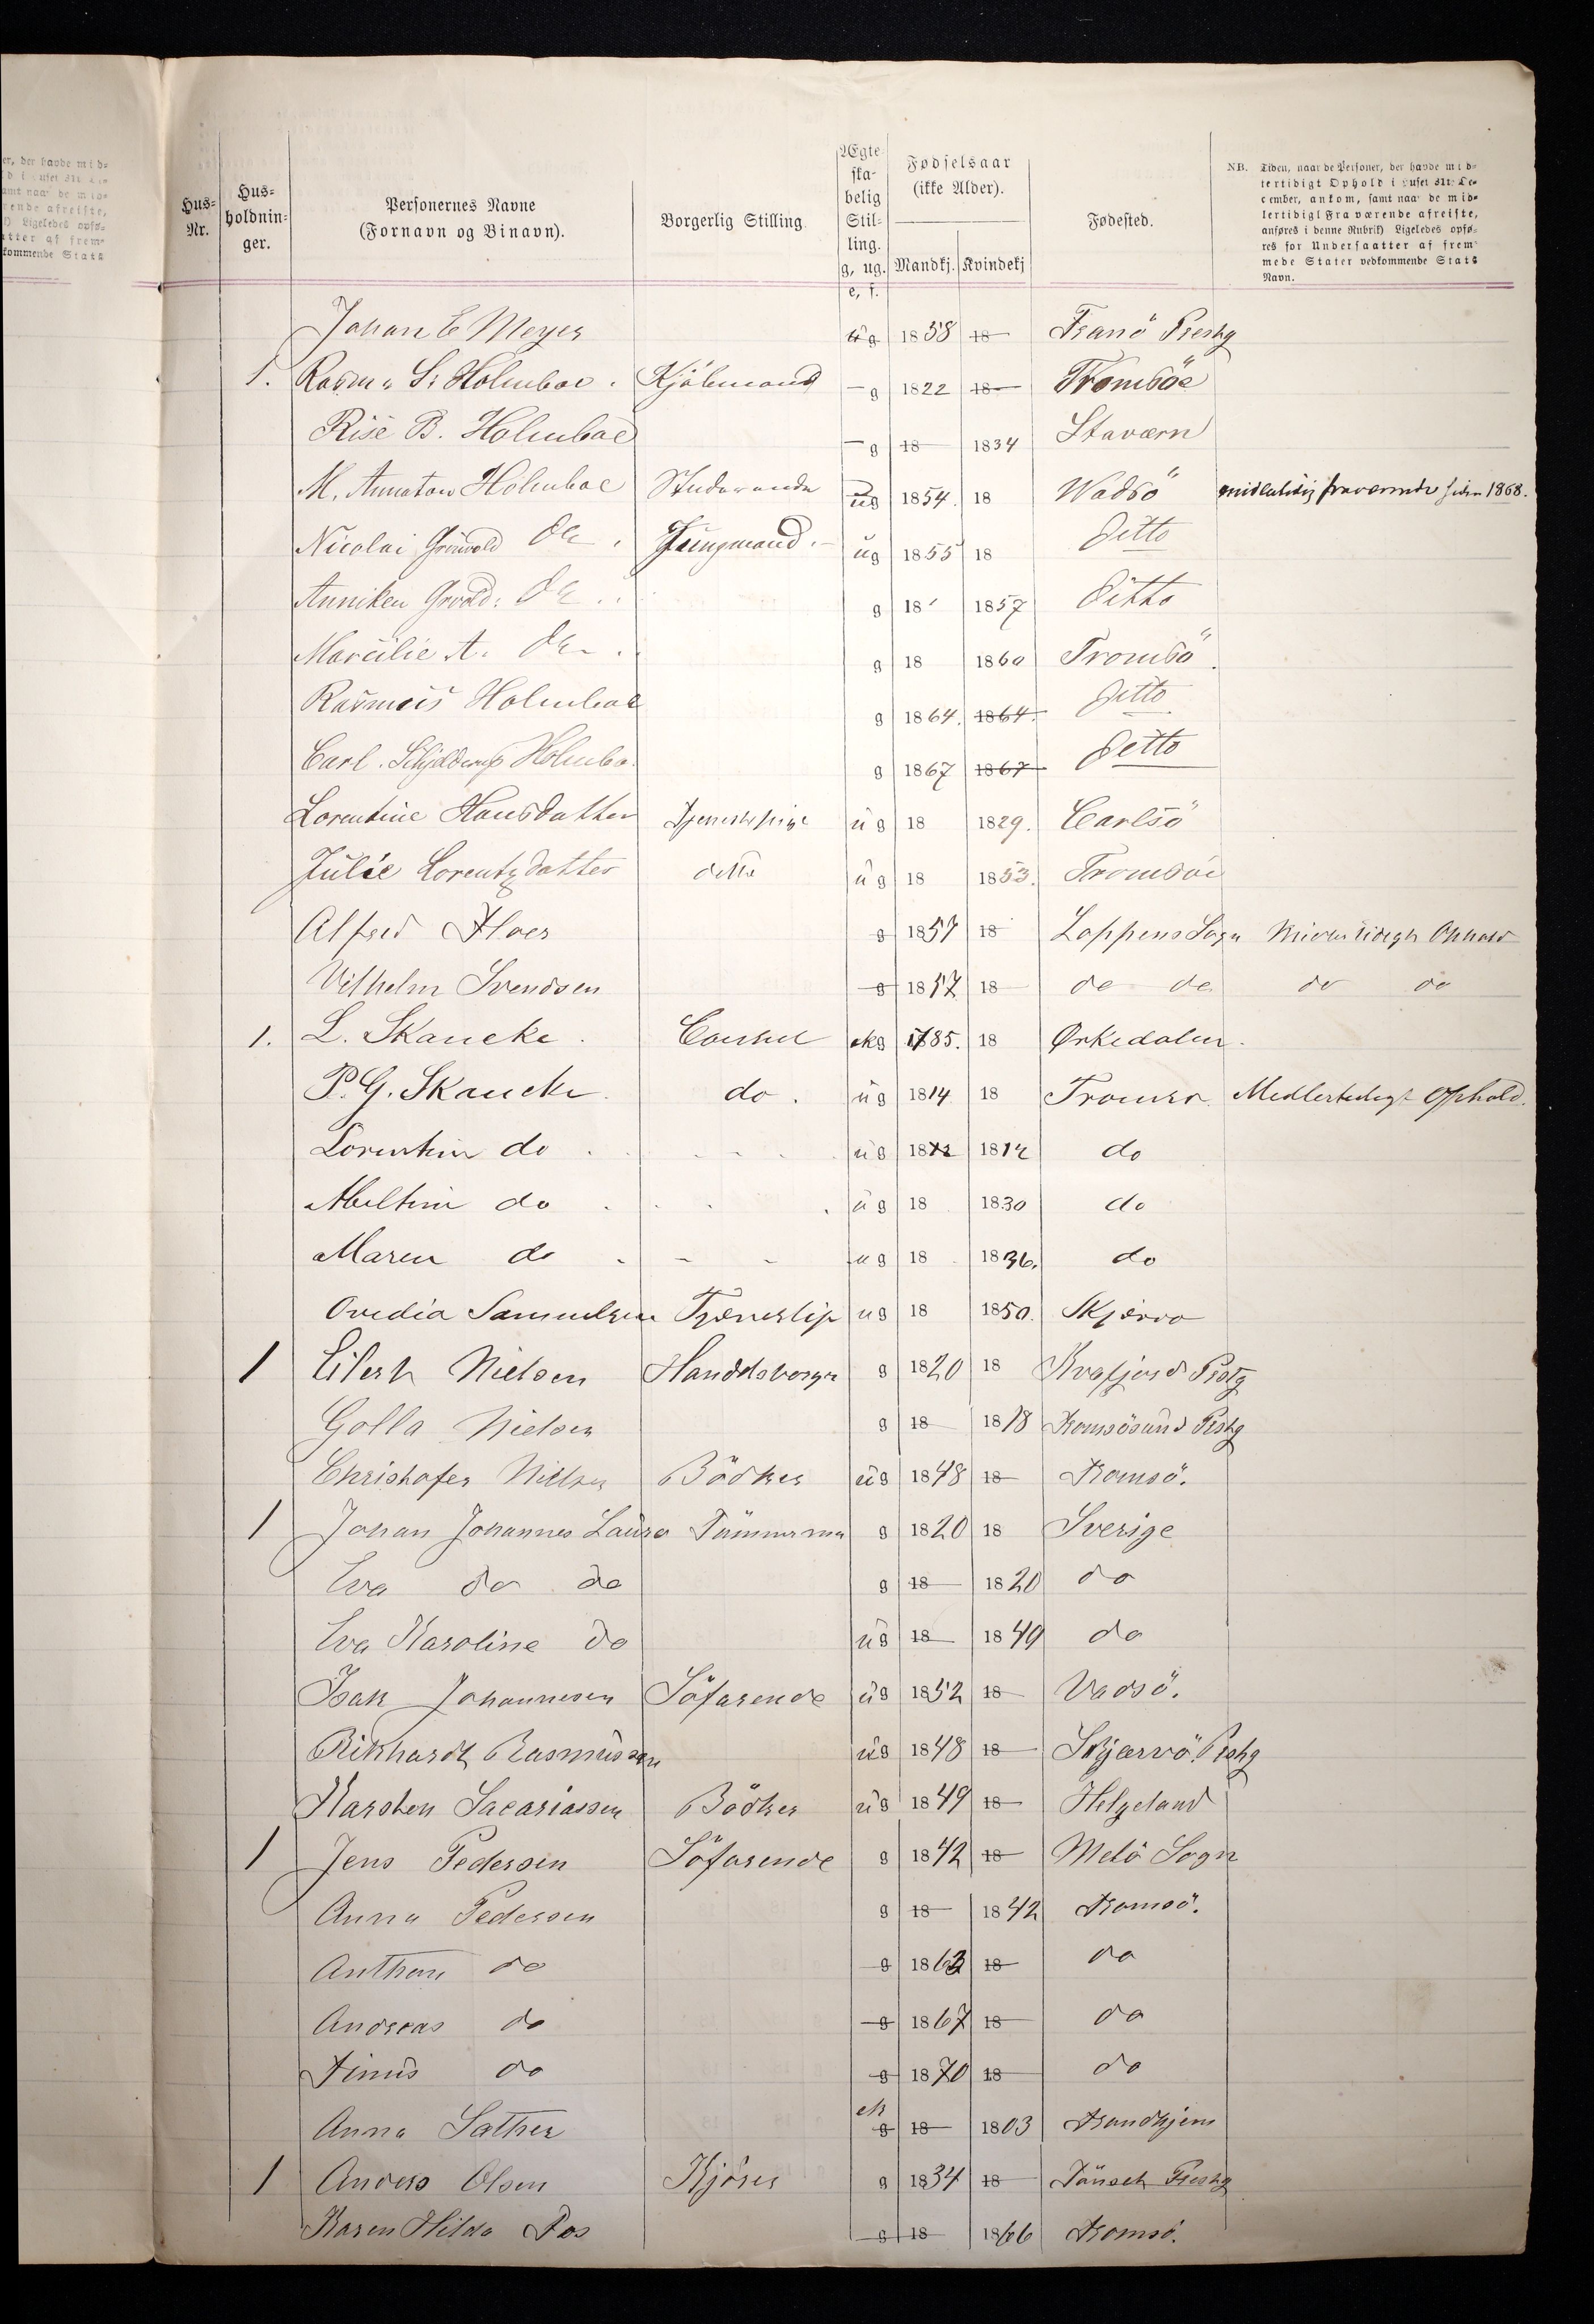 er, der havde mid-
amt naar de mid-
rende afreiste,
Ligeledes opfø-
atter af frem-
kommende Stats
Hus-Nr. Hus-holdnin-ger. Personernes Navne (Fornavn og Binavn). Borgerlig Stilling. Ægte-ska-belig Stil-ling. g, ug. e, f. Fødselsaar (ikke Alder). Mandkj. Kvindekj Fødested.
NB. Tiden, naar de Personer, der havde mid-
tertidigt Ophold i Huset 31te De-
cember, ankom, samt naar de mid-
lertidigt Fraværende afreiste,
anføres i denne Rubrik) Ligeledes opfø-
res for Undersaatter af frem-
mede Stater vedkommende Stats
Navn.
Johan E Meyer ug 1858 18 Tranö Prestg
1. Rasmus S. Holmboe. Kjöbmand g 1822 18 Tromsöe
Rise B. Holmboe g 18 1834 Staværn
M. Holmboe Studerende ug 1854. 18 Wadsö midlertidig fraværende siden 1868.
Nicolai Grönvold do. Jungmand. ug 1855 18 Ditto
Anniken do. g 18 1857 Ditto
Marcilie A. do. g 18 1860 Tromsö.
Rasmus Holmboe g 1864. 1864. Ditto
Carl. Schjelderup Holmbo. g 1867 1867 Ditto
Lorentine Hansdatter Tjenestepige ug 18 1829. Carlsö
Julie Lorentzdatter ditto ug 18 1853. Tromsöe
Alfred g 1857 18 Loppens Sogn Midlertidigt Ophold
Vilhelm Svendsen g 1857 18 do do do do
1. L. Skancke. Consul ekg 1785. 18 Ørkedalen.
P. G. Skancke. do. ug 1814 18 Tromsø. Medlertidigt Ophold.
Lorentine do. ug 1812 1812 do
Meltine do. ug 18 1830 do
Maren do. ug 18 1836. do
Ovedia Samuelsen Tjenestep ug 18 1850. Skjervø
1 Eilert Nielsen Handelsborger g 1820 18 Kvæfjord Prstg
Golla Nielsen g 18 1818 Tromsösund Prstg
Christofer Nielsen Bödker ug 1848 18 Tromsö.
1 Johan Johannes Laura Tömmerma g 1820 18 Sverige
Eva do do g 18 1820 do
Eva Karoline do ug 18 1849 do
Isak Johannesen Söfarende ug 1852 18 Vadsö.
Rikhardt Rasmussen ug 1848 18 Skjærvö Prstg
Karsten Sacariassen Bödker ug 1849 18 Helgeland
1 Jens Pedersen Söfarende g 1842 18 Melö Sogn
Anna Pedersen g 18 1842 Tromsö.
Anthon do g 1863 18 do
Andreas do g 1867 18 do
Tinus do g 1870 18 do
Anna Sather ek g 18 1803 Trondhjem
1 Anders Olsen Kjörer g 1834 18 Tönset Prestg
Karen Hilda g 18 1866 Tromsö.